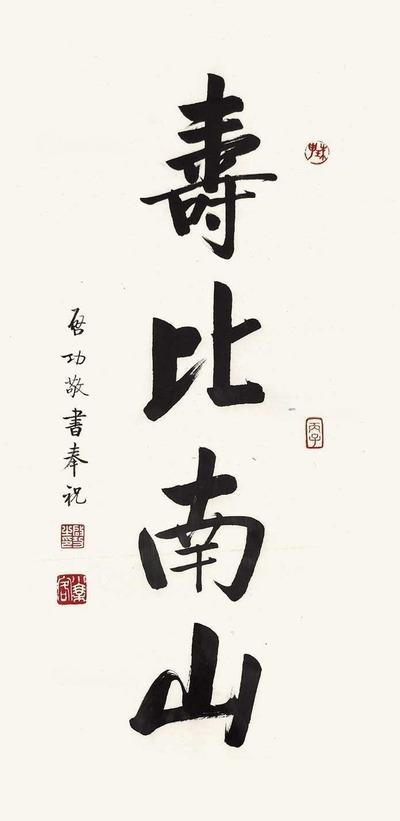 壽比南山
啟功敬書奉祝
丙子